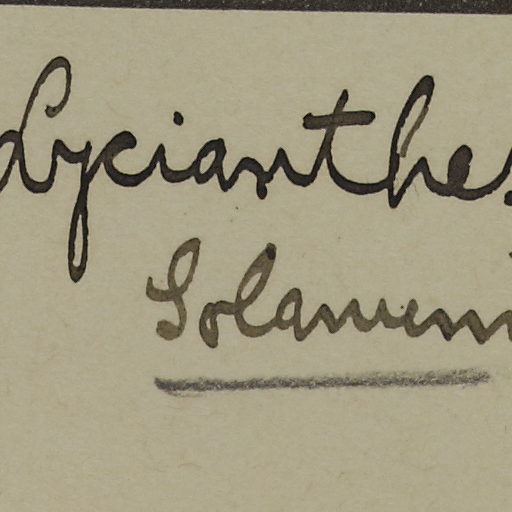 Lycianthes
Solanum